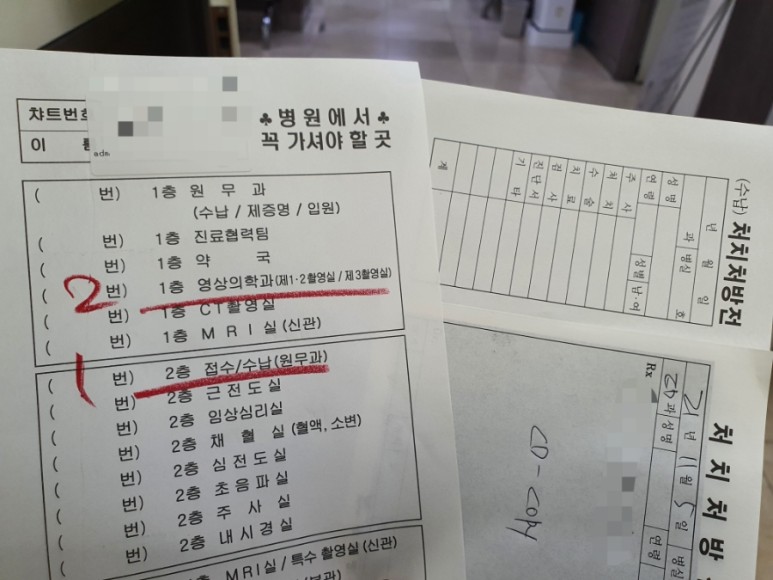 챠트번호
이
adm
♣병원에서♣
꼭 가셔야 할 곳
( 번) 1층 원 무 과
(수납 / 제증명 / 입원)
( 번) 1층 진료협력팀
( 번) 1층 약 국
( 2 번) 1층 영상의학과(제1·2촬영실 / 제3촬영실)
( 번) 1층 CT촬영실
( 번) 1층 M R I 실 (신관)
( 1 번) 2층 접수/수납(원무과)
( 번) 2층 근전도실
( 번) 2층 임상심리실
( 번) 2층 채 혈 실 (혈액, 소변)
( 번) 2층 심전도실
( 번) 2층 초음파실
( 번) 2층 주 사 실
( 번) 2층 내시경실
MRI실 / 특수 촬영실(신관)
(수납) 처치처방전
년 월 일
과 병실 호
성명
연령 성별 남·여
주사
처치
수술
치료
검사
진단서
기타
계
처 치 처 방
21년 11월 5일 병실
과 성명 연령
Rx
CD-copy